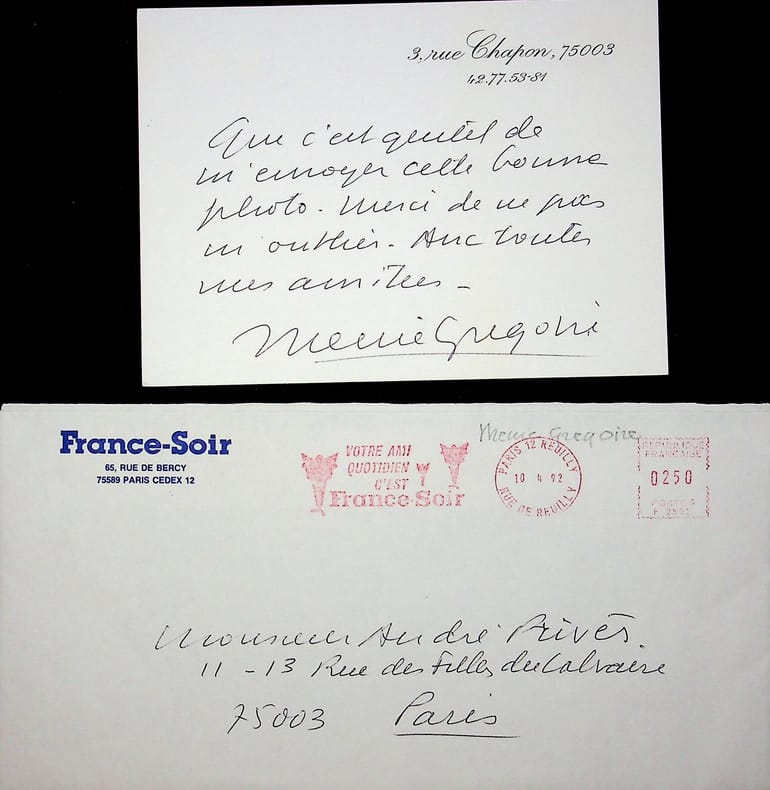 3, rue Chapon, 75003
42.77.53-81
Que c'est gentil de
m'envoyer cette bonne
photo. Merci de ne pas
m'oublier. Avec toutes
mes amitiés -
Menie Gregoire
France-Soir
65, RUE DE BERCY
75589 PARIS CEDEX 12
VOTRE AMI
QUOTIDIEN
C'EST
France-Soir
Menie Gregoire
PARIS 12 REUILLY
10 4 92
RUE DE REUILLY
REPUBLIQUE
FRANCAISE
0250
POSTES
Monsieur André Privés
11-13 Rue des Filles du Calvaire
75003 Paris